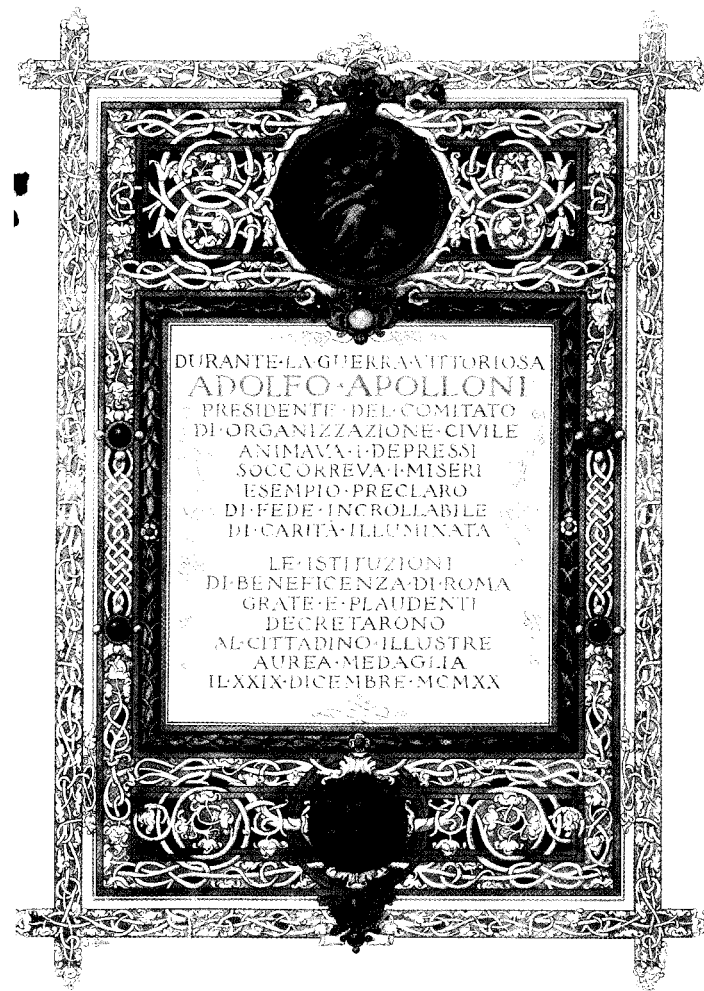 DURANTE·LA·GUERRA·VITTORIOSA
ADOLFO·APOLLONI
PRESIDENTE·DEL·COMITATO
DI·ORGANIZZAZIONE·CIVILE
ANIMAVA·I·DEPRESSI
SOCCORREVA·I·MISERI
ESEMPIO·PRECLARO
DI·FEDE·INCROLLABILE
DI·CARITÀ·ILLUMINATA
LE·ISTITUZIONI
DI·BENEFICENZA·DI·ROMA
GRATE·E·PLAUDENTI
DECRETARONO
AL·CITTADINO·ILLUSTRE
AUREA·MEDAGLIA
IL·XXIX·DICEMBRE·MCMXX